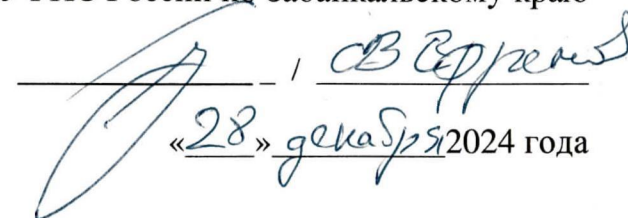 России по Забайкальскому краю
/ СВ Ефремов
«28» декабря 2024 года